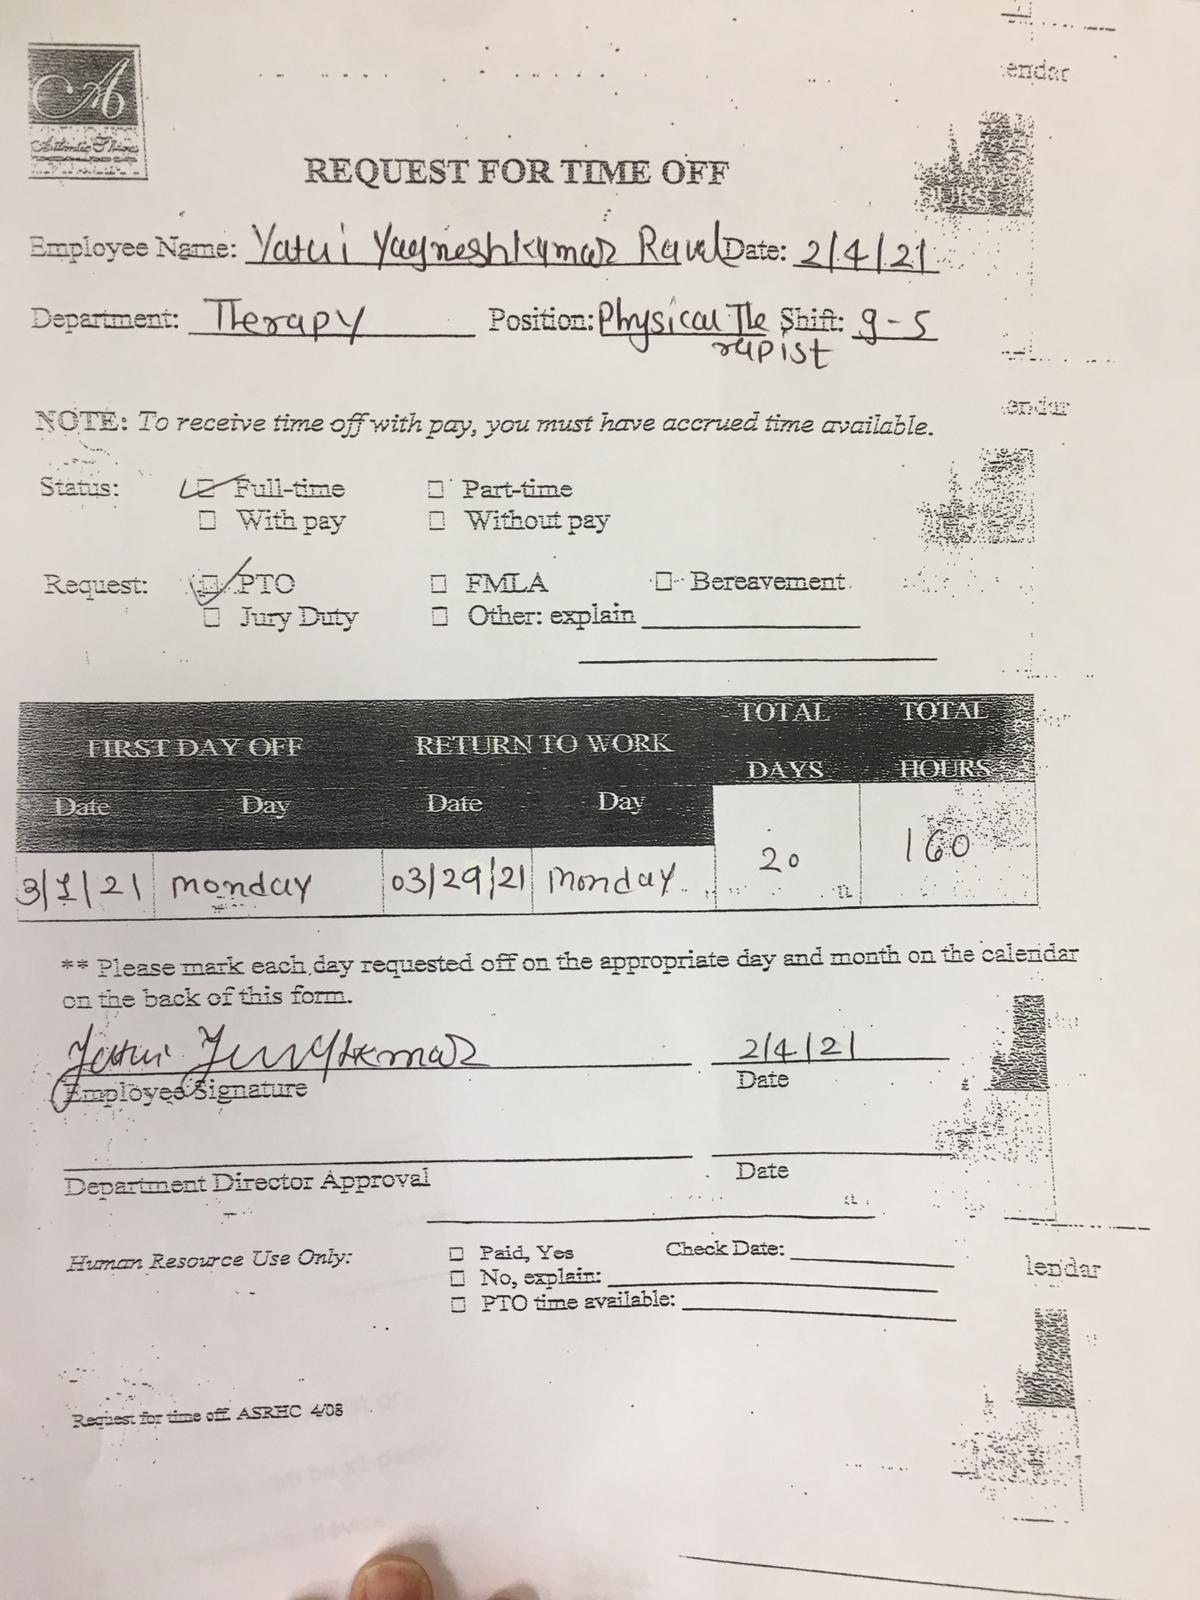 endar
A
Atlantic Shores
REQUEST FOR TIME OFF
Employee Name: Yatui Yagneshkumar Raval Date: 2/4/21
Department: Therapy Position: Physical The Shift: 9-5
rapist
NOTE: To receive time off with pay, you must have accrued time available.
endar
Status: Full-time Part-time
With pay Without pay
Request: PTO FMLA Bereavement
Jury Duty Other: explain
FIRST DAY OFF RETURN TO WORK TOTAL DAYS TOTAL HOURS
Date Day Date Day
3/1/21 monday 03/29/21 monday 20 160
** Please mark each day requested off on the appropriate day and month on the calendar
on the back of this form.
2/4/21
Employee Signature Date
Department Director Approval Date
Human Resource Use Only: Paid, Yes Check Date:
No, explain:
PTO time available:
lendar
Request for time off. ASRHC 4/08